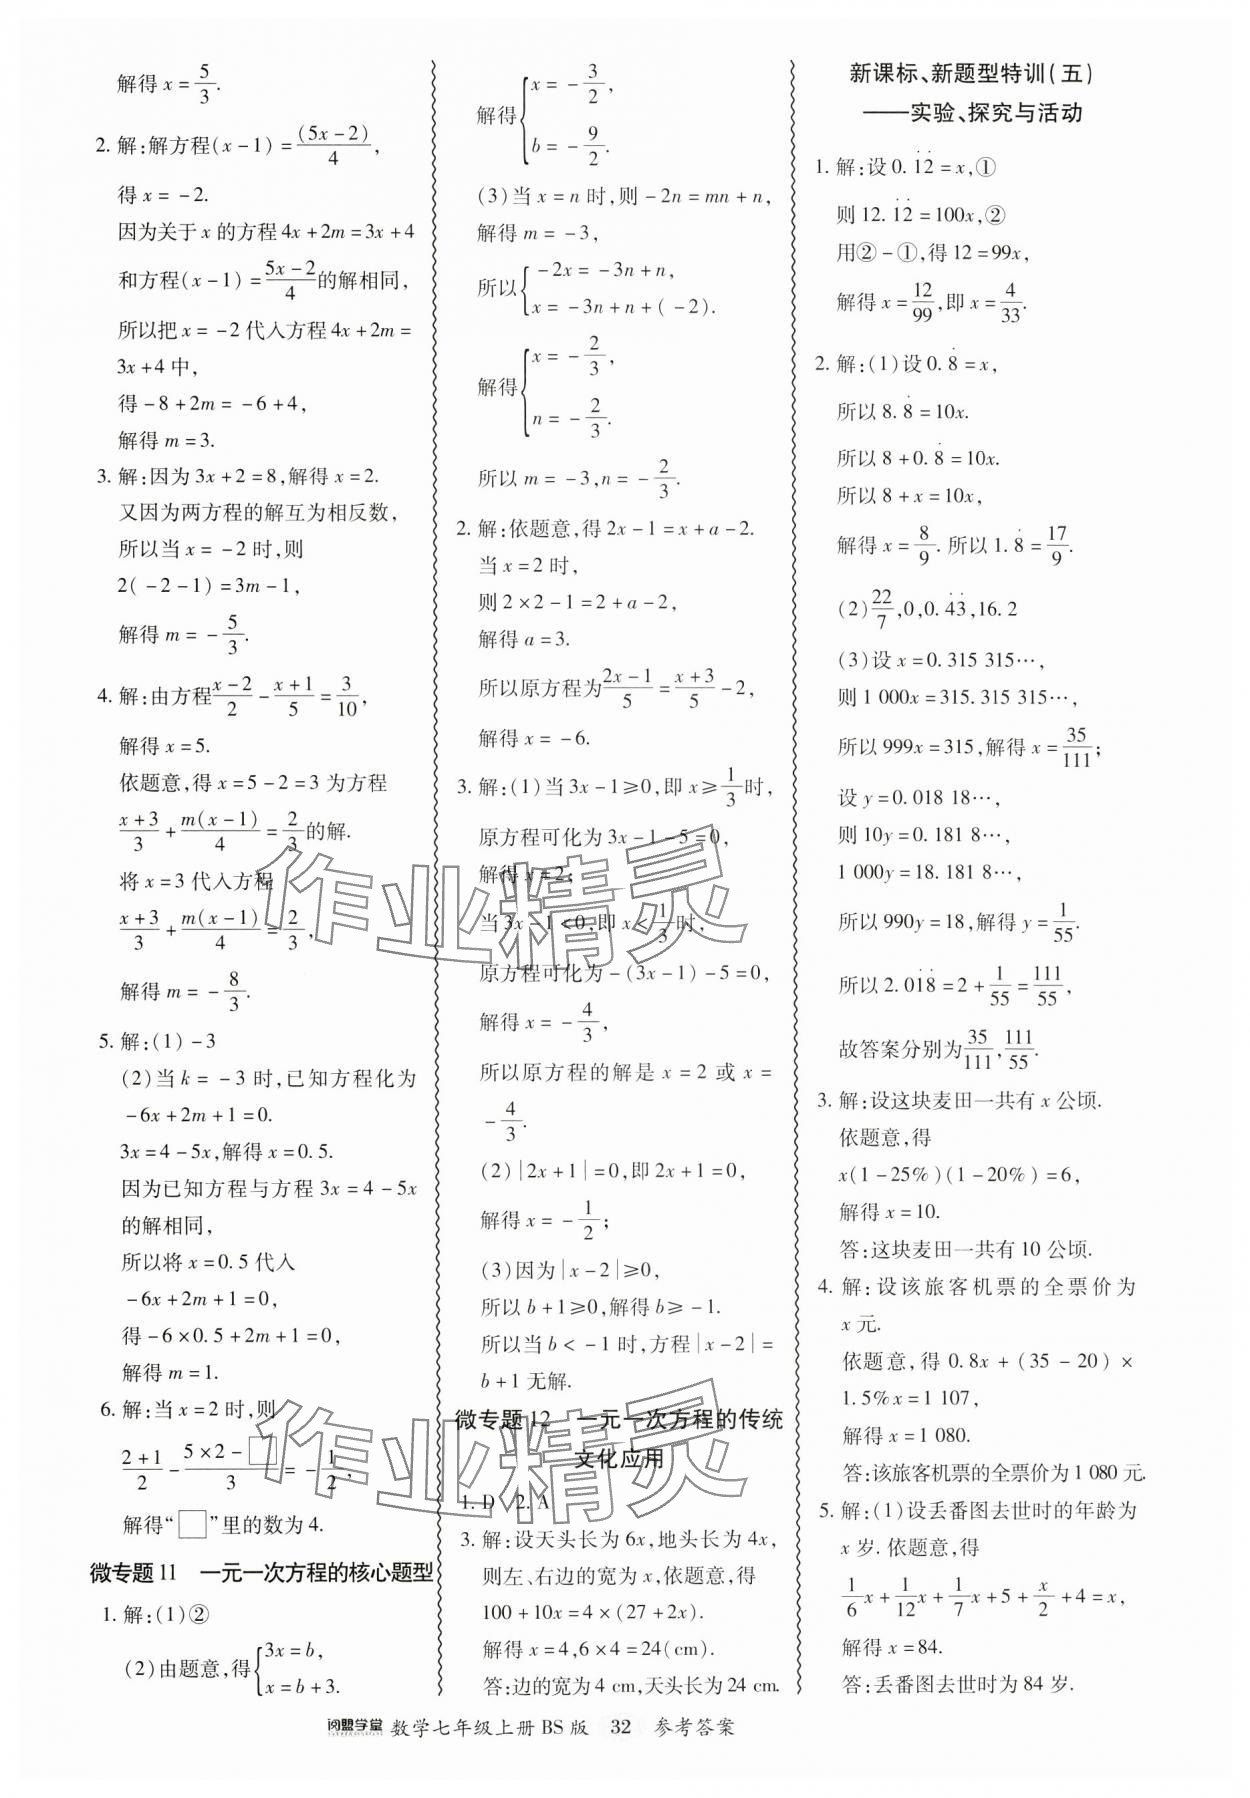 解得 x = 5/3.
2. 解:解方程(x-1) = (5x-2)/4,
得 x = -2.
因为关于 x 的方程 4x+2m=3x+4
和方程(x-1) = (5x-2)/4 的解相同,
所以把 x = -2 代入方程 4x+2m=
3x+4 中,
得 -8+2m = -6+4,
解得 m = 3.
3. 解:因为 3x+2=8,解得 x=2.
又因为两方程的解互为相反数,
所以当 x = -2 时,则
2(-2-1) = 3m-1,
解得 m = -5/3.
4. 解:由方程 (x-2)/2 - (x+1)/5 = 3/10,
解得 x=5.
依题意,得 x=5-2=3 为方程
(x+3)/3 + m(x-1)/4 = 2/3 的解.
将 x=3 代入方程
(x+3)/3 + m(x-1)/4 = 2/3,
解得 m = -8/3.
5. 解:(1) -3
(2)当 k = -3 时,已知方程化为
-6x+2m+1=0.
3x=4-5x,解得 x=0.5.
因为已知方程与方程 3x=4-5x
的解相同,
所以将 x=0.5 代入
-6x+2m+1=0,
得 -6×0.5+2m+1=0,
解得 m=1.
6. 解:当 x=2 时,则
(2+1)/2 - (5×2-□)/3 = -1/2,
解得“□”里的数为 4.
微专题 11 一元一次方程的核心题型
1. 解:(1)②
(2)由题意,得{3x=b,
x=b+3.
解得{x = -3/2,
b = -9/2.
(3)当 x=n 时,则 -2n=mn+n,
解得 m = -3,
所以{-2x = -3n+n,
x = -3n+n+(-2).
解得{x = -2/3,
n = -2/3.
所以 m = -3, n = -2/3.
2. 解:依题意,得 2x-1=x+a-2.
当 x=2 时,
则 2×2-1=2+a-2,
解得 a=3.
所以原方程为 (2x-1)/5 = (x+3)/5 - 2,
解得 x = -6.
3. 解:(1)当 3x-1≥0,即 x≥1/3 时,
原方程可化为 3x-1-5=0,
解得 x=2;
当 3x-1<0,即 x<1/3 时,
原方程可化为 -(3x-1)-5=0,
解得 x = -4/3,
所以原方程的解是 x=2 或 x=
-4/3.
(2)|2x+1|=0,即 2x+1=0,
解得 x = -1/2;
(3)因为|x-2|≥0,
所以 b+1≥0,解得 b≥-1.
所以当 b<-1 时,方程|x-2|=
b+1 无解.
微专题 12 一元一次方程的传统
文化应用
1. D 2. A
3. 解:设天头长为 6x,地头长为 4x,
则左、右边的宽为 x,依题意,得
100+10x=4×(27+2x).
解得 x=4,6×4=24(cm).
答:边的宽为 4 cm,天头长为 24 cm.
新课标、新题型特训(五)
——实验、探究与活动
1. 解:设 0.1̇2̇=x,①
则 12.1̇2̇=100x,②
用②-①,得 12=99x,
解得 x=12/99,即 x=4/33.
2. 解:(1)设 0.8̇=x,
所以 8.8̇=10x.
所以 8+0.8̇=10x.
所以 8+x=10x,
解得 x=8/9. 所以 1.8̇=17/9.
(2)22/7,0,0.4̇3̇,16.2
(3)设 x=0.315 315…,
则 1 000x=315.315 315…,
所以 999x=315,解得 x=35/111;
设 y=0.018 18…,
则 10y=0.181 8…,
1 000y=18.181 8…,
所以 990y=18,解得 y=1/55.
所以 2.01̇8̇=2+1/55=111/55,
故答案分别为 35/111,111/55.
3. 解:设这块麦田一共有 x 公顷.
依题意,得
x(1-25%)(1-20%)=6,
解得 x=10.
答:这块麦田一共有 10 公顷.
4. 解:设该旅客机票的全票价为
x 元.
依题意,得 0.8x+(35-20)×
1.5%x=1 107,
解得 x=1 080.
答:该旅客机票的全票价为 1 080 元.
5. 解:(1)设丢番图去世时的年龄为
x 岁.依题意,得
1/6x+1/12x+1/7x+5+x/2+4=x,
解得 x=84.
答:丢番图去世时为 84 岁.
阅盟学堂 数学七年级上册 BS 版 32 参考答案
作业精灵
作业精灵